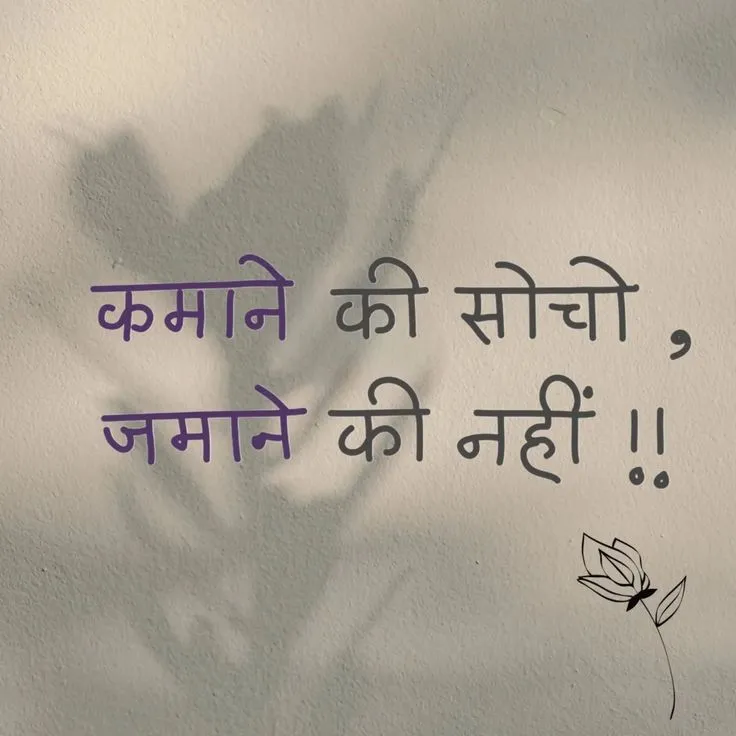 कमाने की सोचो ,
जमाने की नहीं !!